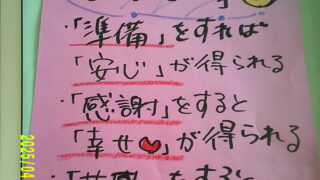 ・「準備」をすれば
「安心」が得られる
・「感謝」をすると
「幸せ❤」が得られる
をすると
2025/04